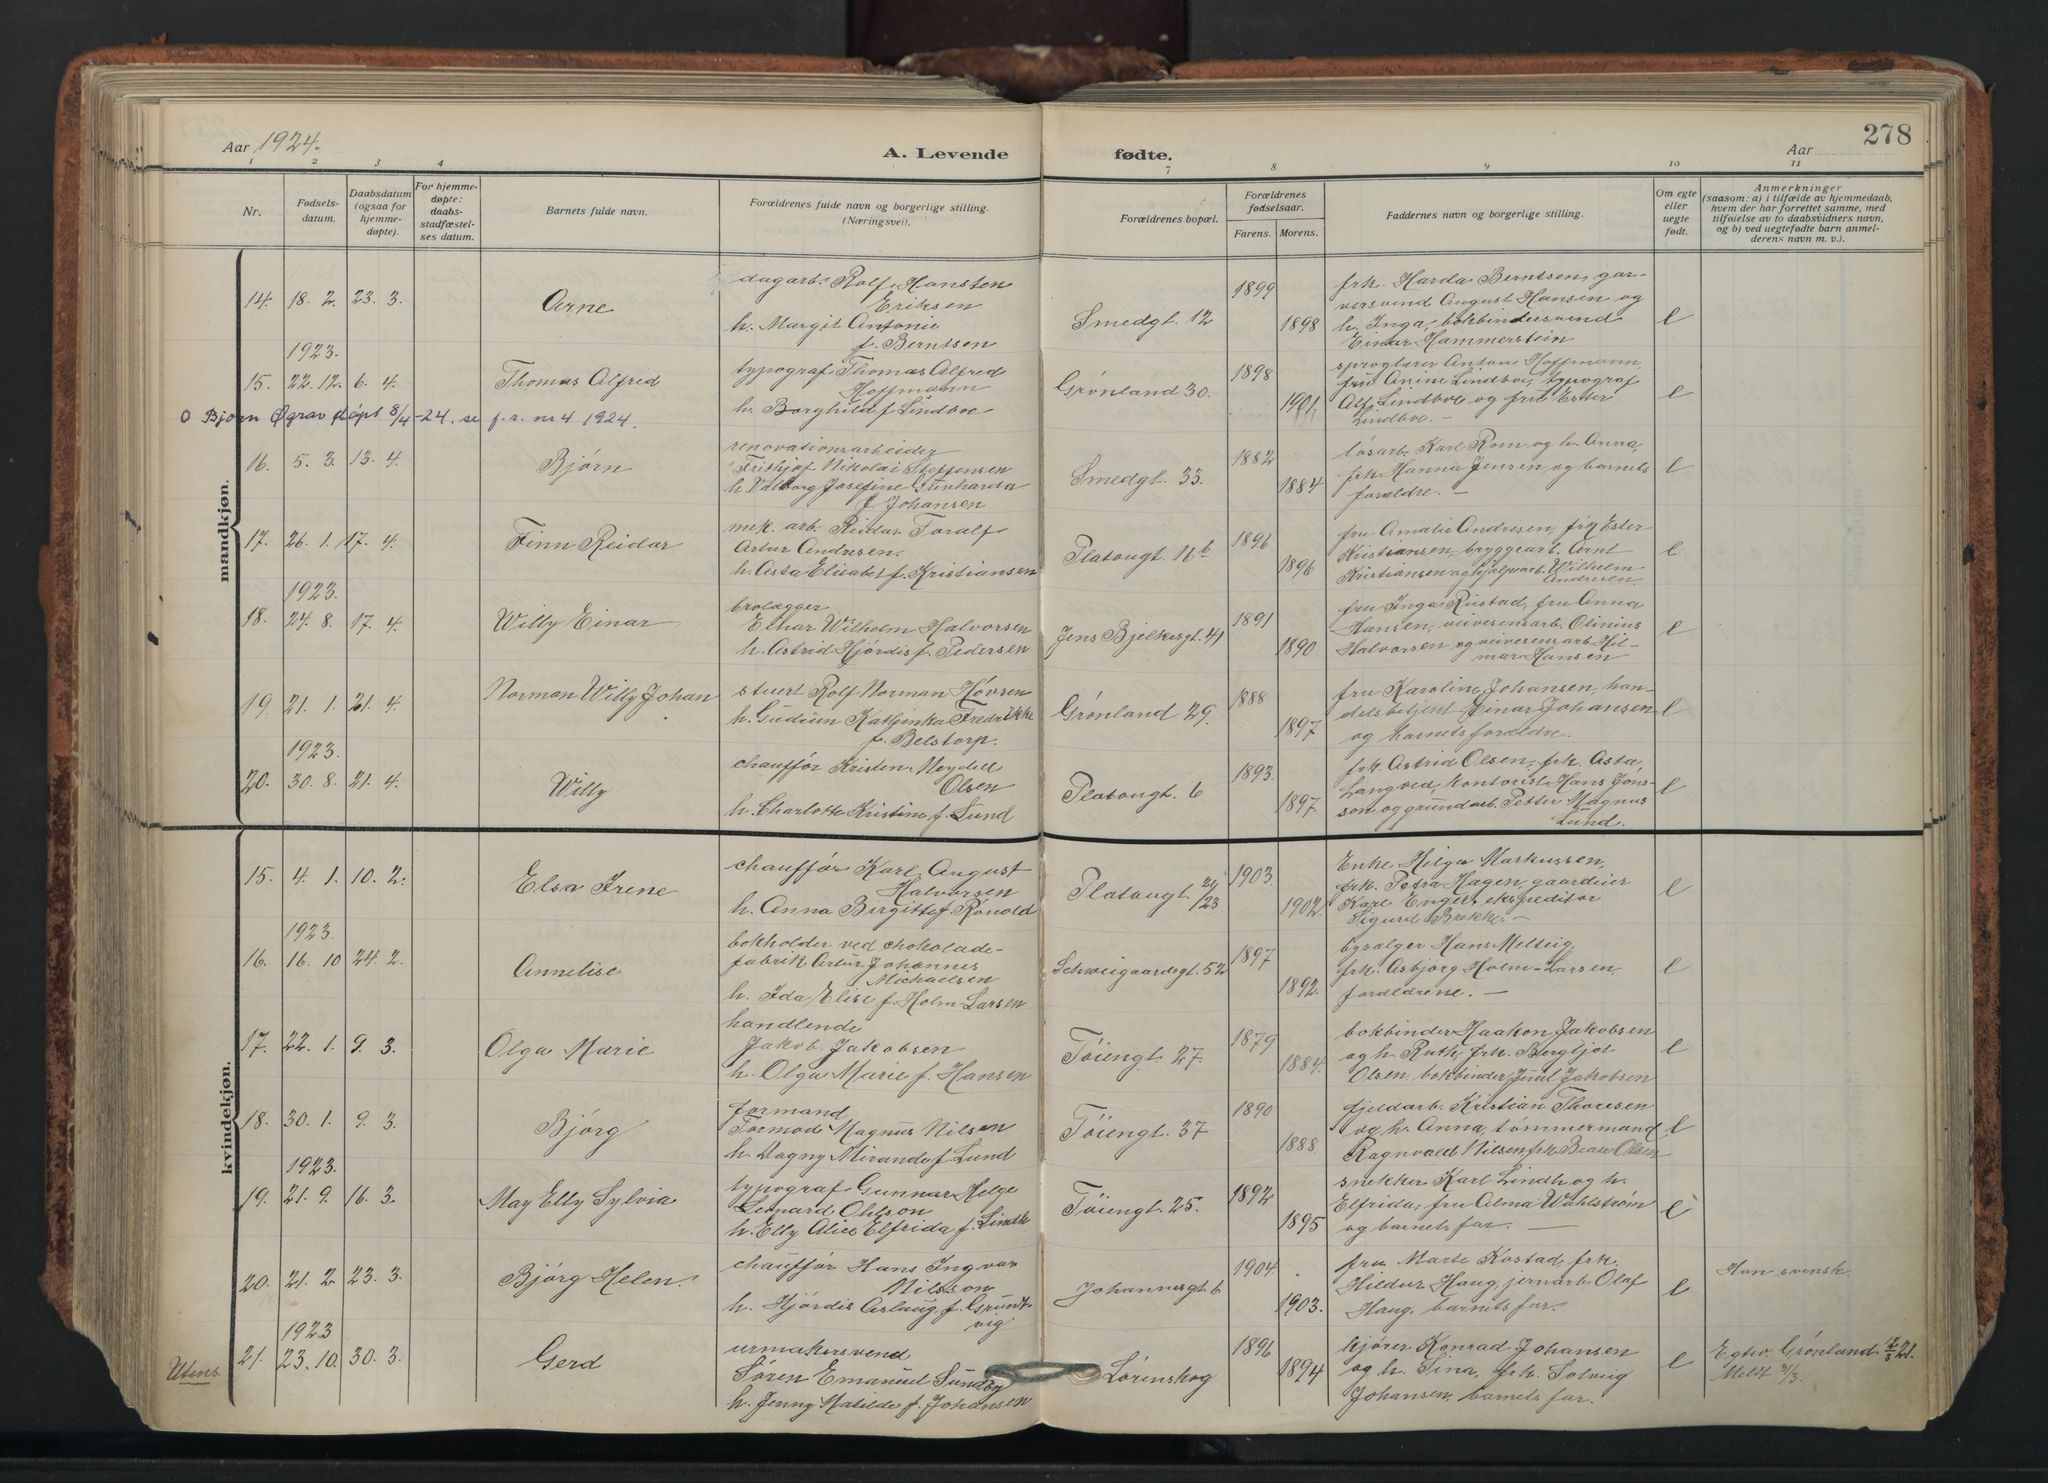 278
Aar 1924.
A. Levende fødte.
Aar
1 2 3 4 7 8 9 10 11
Nr.
Fødsels-
datum.
Daabsdatum
(ogsaa for
hjemme-
døpte).
For hjemme-
døpte:
daabs-
stadfæstel-
ses datum.
Barnets fulde navn.
Forældrenes fulde navn og borgerlige stilling.
(Næringsvei).
Forældrenes bopæl.
Forældrenes
fødselsaar.
Farens. Morens.
Faddernes navn og borgerlige stilling.
Om egte
eller
uegte
født.
Anmerkninger
(saasom: a) i tilfælde av hjemmedaab,
hvem der har forrettet samme, med
tilføielse av to daabsvidners navn,
og b) ved uegtefødte barn anmel-
derens navn m. v.).
mandkjøn.
14. 18. 2. 23. 3.
Arne
dagarb. Rolf Hansten
Eriksen
h. Margit Antonie
f. Berntsen
Smedgt. 12
1899
1898
frk. Harda Berntsen, gar-
versvend August Hansen og
h. Inga, bokbindersvend
Einar Hammerstein
e
1923.
15. 22. 12. 6. 4.
Thomas Alfred
typograf Thomas Alfred
Hoffmann
h. Borghild f. Lindboe
Grønland 30.
1898
1901.
sproglærer Anton Hoffmann,
fru Anine Lindboe, typograf
Alf Lindboe og fru Ester
Lindboe. —
e
O Bjørn Øgrav døpt 8/4-24. se f. r. nr 4 1924.
16. 5. 3. 13. 4.
Bjørn
renovationsarbeider
Frithjof Nikolai Steffensen
h. Valborg Josefine Gunharda
f. Johansen
Smedgt. 33.
1882
1884
løsarb. Karl Rom og h. Anna,
frk. Hanna Jensen og barnets
forældre. —
e
17. 26. 1. 17. 4.
Finn Reidar
mek. arb. Reidar Toralf
Artur Andresen.
h. Asta Elisabet f. Kristiansen
Platougt. 16 b
1896
1896
fru Amalie Andresen, frk Ester
Kristiansen, bryggearb. Arnt
Kristiansen og hjelpearb. Wilhelm
Andresen
e
1923.
18. 24. 8. 17. 4.
Willy Einar
brolægger
Einar Wilhelm Halvorsen
h. Astrid Hjørdis f. Pedersen
Jens Bjelkesgt. 41
1891
1890
fru Inga Rustad, fru Anna
Hansen, veivesensarb. Otinius
Halvorsen og veivesensarb Hil-
mar Hansen
e
19 21. 1. 21. 4.
Norman Willy Johan
stuert Rolf Norman Høvren
h. Gudrun Katjinka Fredrikke
f. Belstorp.
Grønland 29.
1888
1897
fru Karoline Johansen, han-
delsbetjent Einar Johansen
og barnets forældre.
e
1923.
20. 30. 8. 21. 4.
Willy
chauffør Kristen Meydell
Olsen
h. Charlotte Kristine f. Lund
Platougt. 6
1893.
1897.
frk. Astrid Olsen, frk. Asta
Langved, kontorist Hans Jons-
son og grundarb. Petter Magnus
Lund.
e
kvindekjøn.
15. 4. 1. 10. 2.
Elsa Irene
chauffør Karl August
Halvorsen
h. Anna Birgitte f. Rønold
Platougt. 21/23
1903
1902.
Enke Helga Markussen,
frk. Petra Hagen, gaardeier
Karl Enger, ekspeditør
Sigurd Brekke —
e
1923.
16. 16. 10 24. 2.
Annelise
bokholder ved chokolade-
fabrik Artur Johannes
Michaelsen
h. Ida Elise f. Holm-Larsen
Schweigaardsgt. 52
1897
1892.
bysælger Hans Melteig,
frk. Asbjørg Holm-Larsen,
forældrene. —
e
17. 22. 1. 9. 3.
Olga Marie
handlende
Jakob Jakobsen
h. Olga Marie f. Hansen
Tøiengt. 27.
1879
1884.
bokbinder Haakon Jakobsen
og h. Ruth, frk. Bergljot
Olsen, bokbinder Juul Jakobsen
e
18. 30. 1. 9. 3.
Bjørg
formand
Tormod Magnus Nilsen
h. Dagny Mirande f. Lund
Tøiengt. 37
1890
1888
fjeldarb. Kristian Thoresen
og h. Anna, tømmermand
Ragnvald Nilsen, frk Beate Olsen
e
1923.
19. 21. 9. 16. 3.
May Elly Sylvia
typograf Gunnar Helge
Leonard Ohlson
h. Elly Alice Elfrida f. Lindh
Tøiengt. 25.
1892
1895
snekker Karl Lindh og h.
Elfrida, fru Alma Wahlstrøm
og barnets far. —
e
20. 21. 2. 23. 3.
Bjørg Helen.
chauffør Hans Ingvar
Nilsson
h. Hjørdis Aslaug f. Grundt-
vig
Johannesgt 6
1904
1903.
fru Marte Kostad, frk.
Hildur Haug, jernarb. Olaf
Haug, barnets far.
e
Han svensk.
1923
Utens
21. 23. 10. 30. 3.
Gerd
urmakersvend
Søren Emanuel Sundby
h. Jenny Matilde f. Johansen
Lørenskog
1896
1894
kjører Konrad Johansen
og h. Sina, frk. Solveig
Johansen, barnets far.
e
Egtev. Grønland 21.
Meldt 31/3.